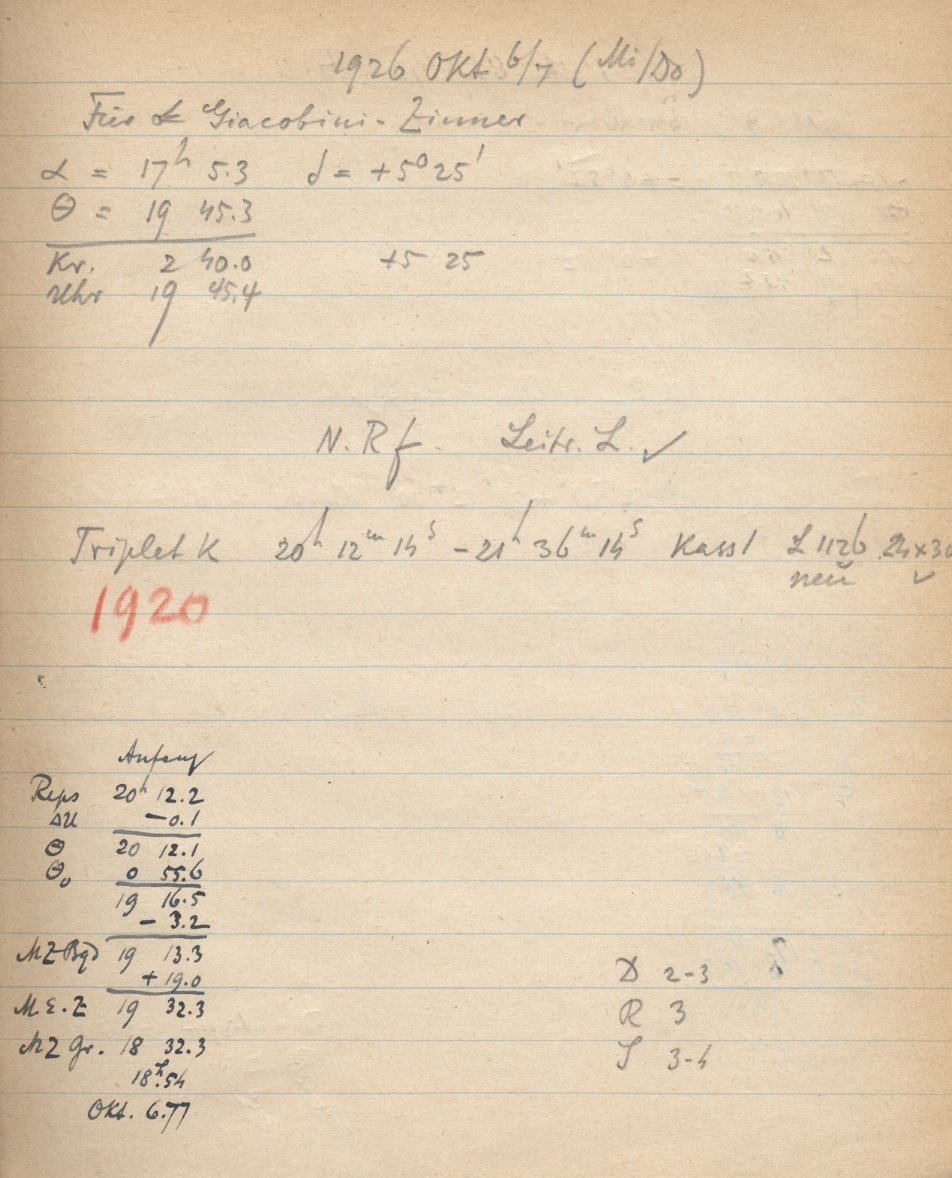 1926 Okt 6/7 (Mi/Do)
Für Giacobini-Zinner
α = 17h 5.3 δ = +5° 25'
Θ = 19 45.3
Kr. 2 40.0 +5 25
Uhr 19 45.4
N. Rf. Leitr. L. ✓
Triplet K 20h 12m 14s - 21h 36m 14s Kass 1 L 1126 24x30
neu ✓
1920
Anfang
Reps 20h 12.2
ΔU -0.1
Θ 20 12.1
Θ0 0 55.6
19 16.5
- 3.2
MZ Bgd 19 13.3
+ 19.0
M.E.Z 19 32.3
MZ Gr. 18 32.3
18h.54
Okt. 6.77
D 2-3
R 3
S 3-4